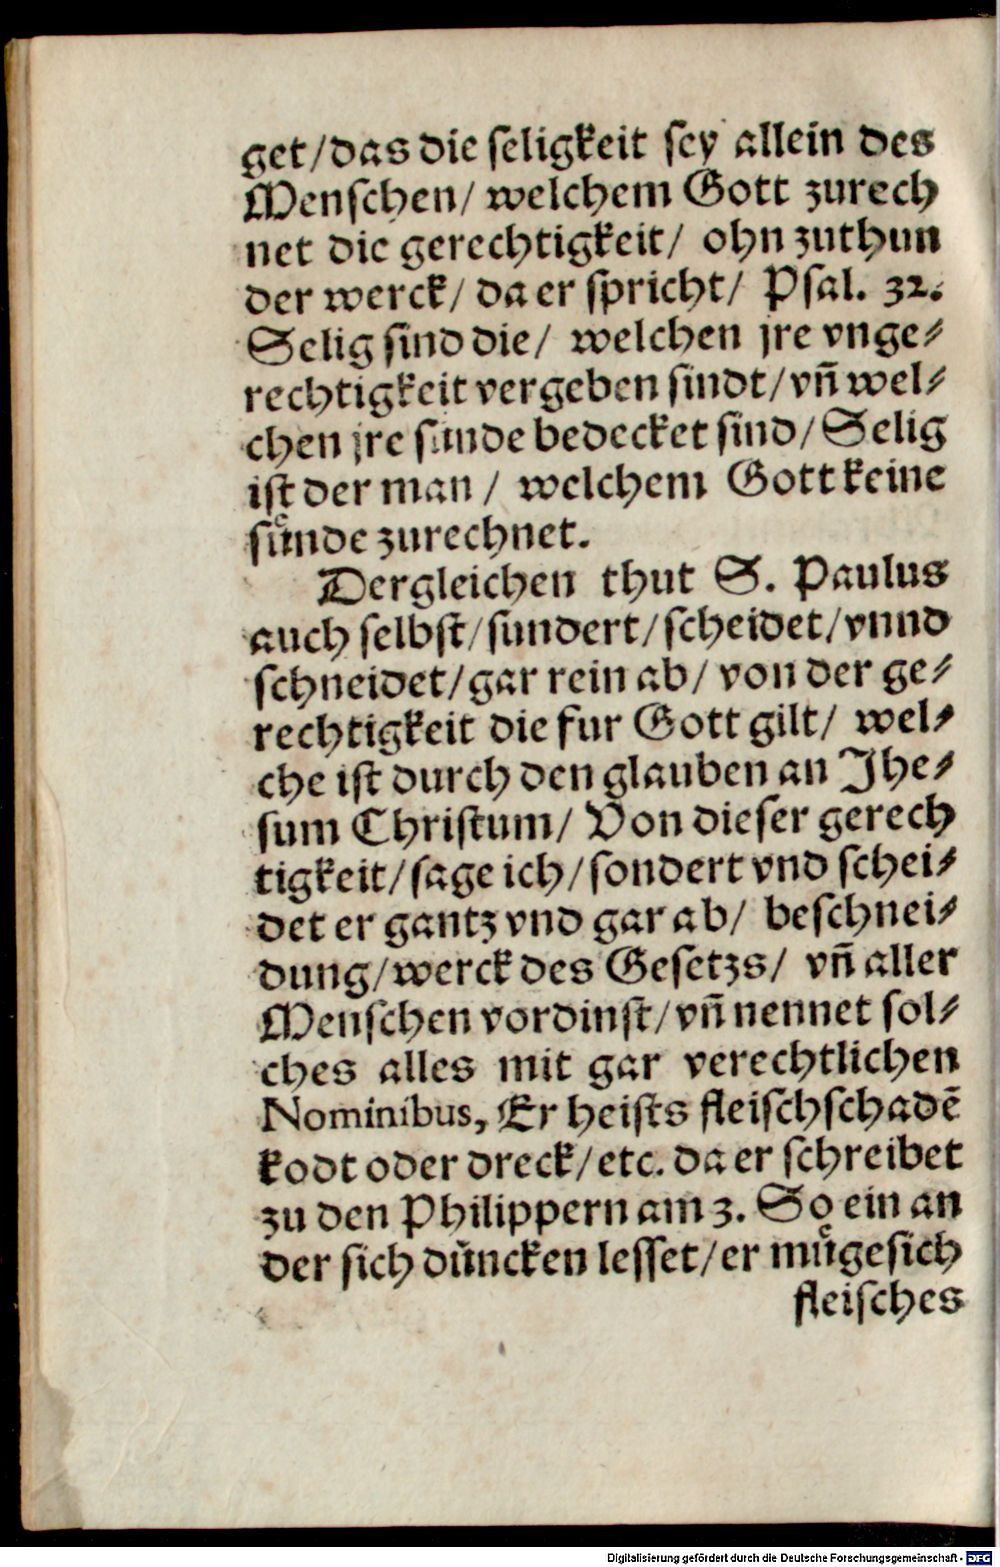 get/das die seligkeit sey allein des
Menschen/ welchem Gott zurech
net die gerechtigkeit/ ohn zuthun
der werck/ da er spricht/ Psal. 32.
Selig sind die/ welchen jre vnge⸗
rechtigkeit vergeben sindt/vñ wel⸗
chen jre sunde bedecket sind/Selig
ist der man / welchem Gott keine
suͤnde zurechnet.
Dergleichen thut S. Paulus
auch selbst/sundert/scheidet/vnnd
schneidet/gar rein ab/ von der ge⸗
rechtigkeit die fur Gott gilt/ wel⸗
che ist durch den glauben an Jhe⸗
sum Christum/ Von dieser gerech
tigkeit/sage ich/sondert vnd schei⸗
det er gantz vnd gar ab/ beschnei⸗
dung/werck des Gesetzs/ vñ aller
Menschen vordinst/vñ nennet sol⸗
ches alles mit gar verechtlichen
Nominibus, Er heists fleischschadẽ
kodt oder dreck/etc. da er schreibet
zu den Philippern am 3. So ein an
der sich duͤncken lesset/er muͤge sich
fleisches
Digitalisierung gefördert durch die Deutsche Forschungsgemeinschaft - DFG